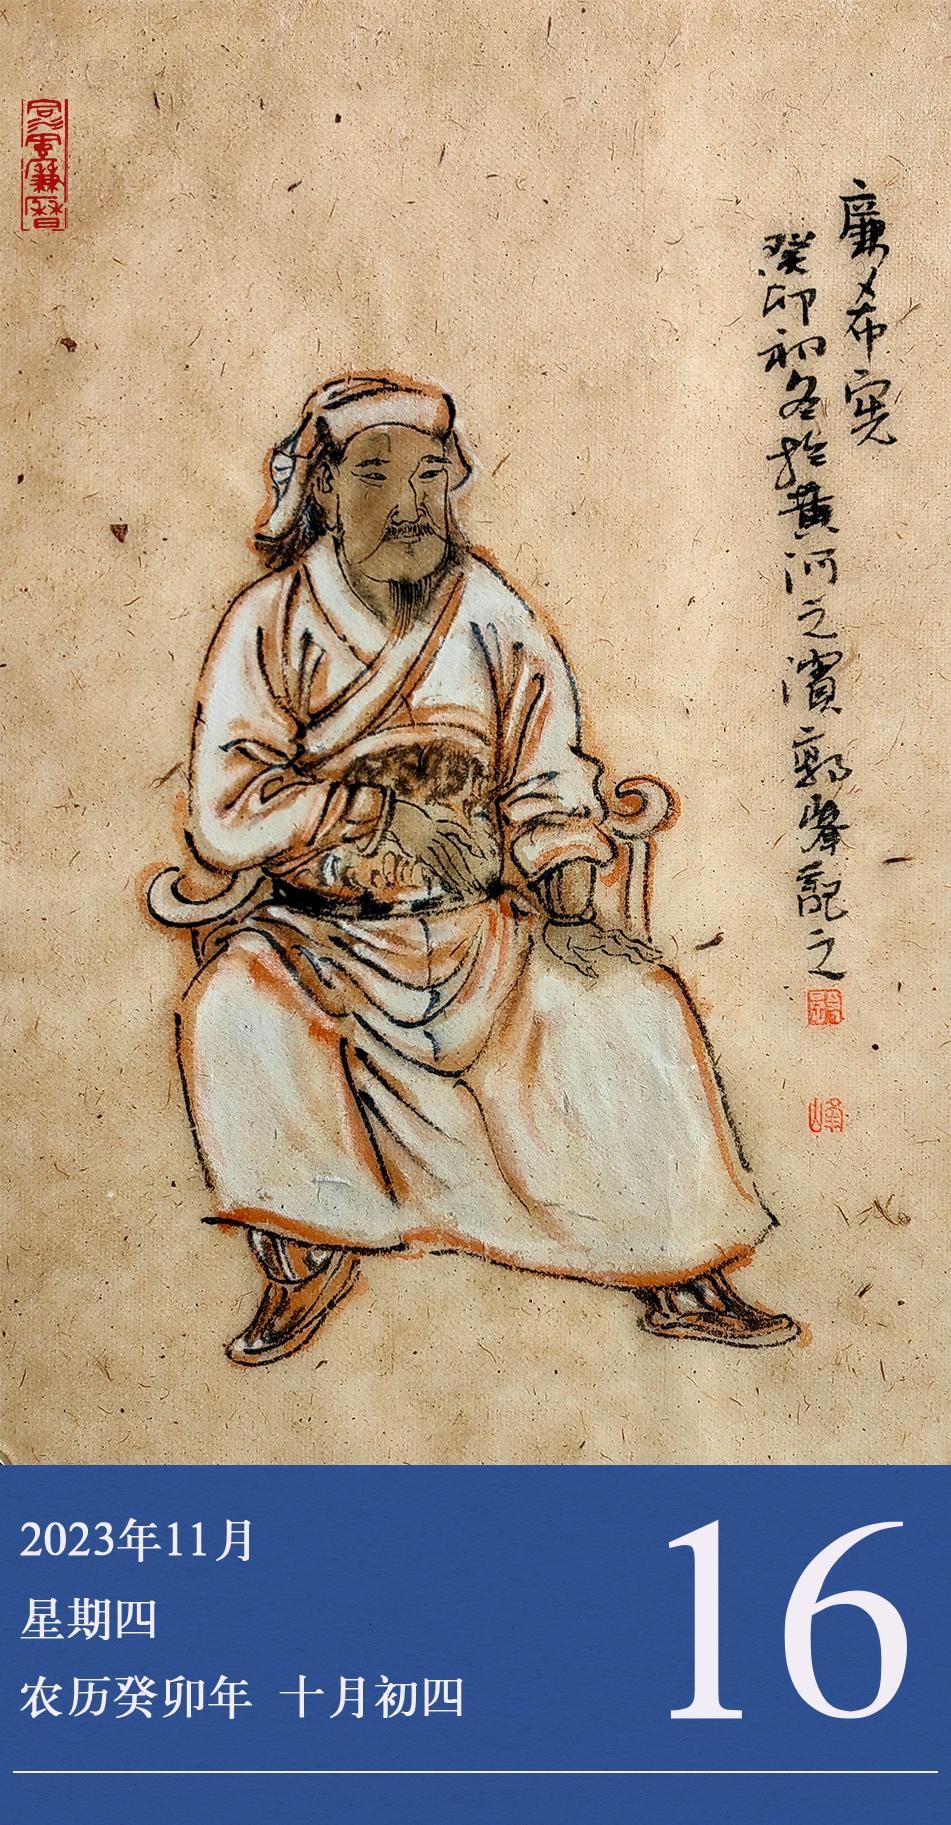 廉希宪
癸卯初冬於黄河之濱郭峰記之
峰
2023年11月
星期四
农历癸卯年 十月初四
16